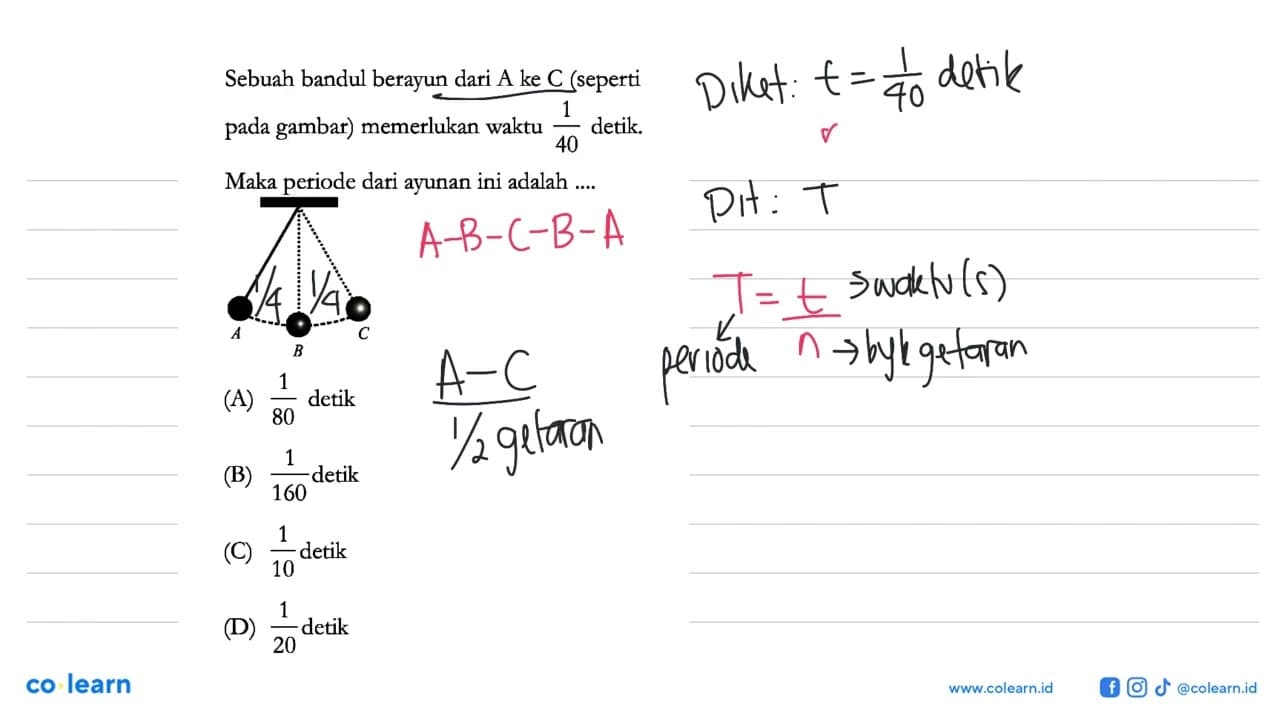 Sebuah bandul berayun dari A ke C (seperti
pada gambar) memerlukan waktu 1/40 detik.
Maka periode dari ayunan ini adalah ....
1/4 1/4
A B C
(A) 1/80 detik
(B) 1/160 detik
(C) 1/10 detik
(D) 1/20 detik
A-B-C-B-A
A-C
1/2 getaran
Diket: t = 1/40 detik
Dit: T
T = t/n
→ waktu (s)
→ byk getaran
periode
co learn
www.colearn.id
@colearn.id